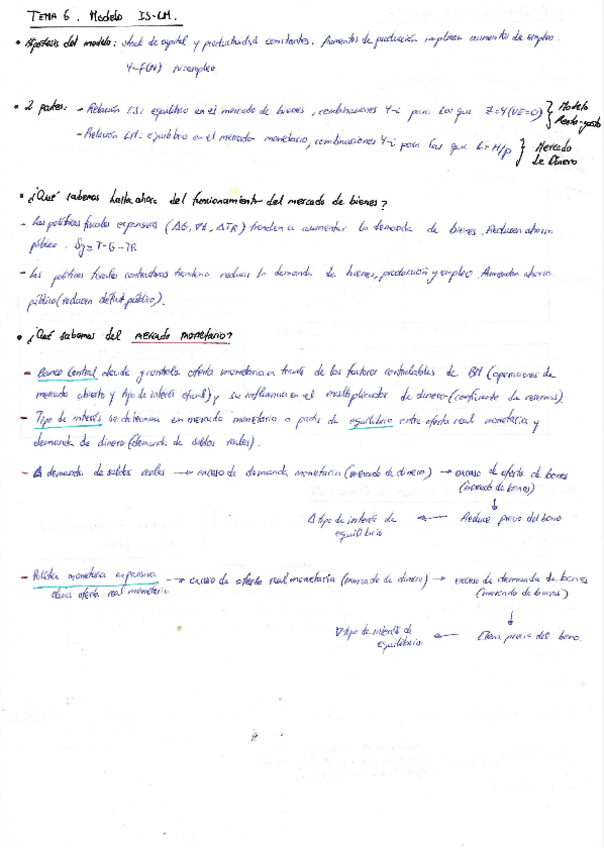 TEMA 6. Modelo IS-LM.
• Hipótesis del modelo: stock de capital y productividad constantes. Aumentos de producción implican aumentos de empleo.
Y=f(N) N=empleo
• 2 partes: - Relación IS: equilibrio en el mercado de bienes, combinaciones Y-i para las que Z=Y (VE=0) } Modelo Renta-gasto
- Relación LM: equilibrio en el mercado monetario, combinaciones Y-i para las que L=M/p } Mercado de Dinero
• ¿Qué sabemos hasta ahora del funcionamiento del mercado de bienes?
- Las políticas fiscales expansivas (ΔG, ∇t, ΔTR) tienden a aumentar la demanda de bienes. Reducen ahorro
público. Sg=T-G-TR
- Las políticas fiscales contractivas tienden a reducir la demanda de bienes, producción y empleo. Aumentan ahorro
público (reducen déficit público).
• ¿Qué sabemos del mercado monetario?
- Banco Central elevada y controla oferta monetaria a través de los factores controlables de BM (operaciones de
mercado abierto y tipo de interés oficial) y su influencia en el multiplicador de dinero (coeficiente de reservas).
- Tipo de interés se determina en mercado monetario a partir de equilibrio entre oferta real monetaria y
demanda de dinero (demanda de saldos reales).
- Δ demanda de saldos reales → exceso de demanda monetaria (mercado de dinero) → exceso de oferta de bonos
(mercado de bonos)
↓
Δ tipo de interés de equilibrio ← Reduce precio del bono
- Política monetaria expansiva → exceso de oferta real monetaria (mercado de dinero) → exceso de demanda de bonos
eleva oferta real monetaria (mercado de bonos)
↓
∇ tipo de interés de equilibrio ← Eleva precio del bono.